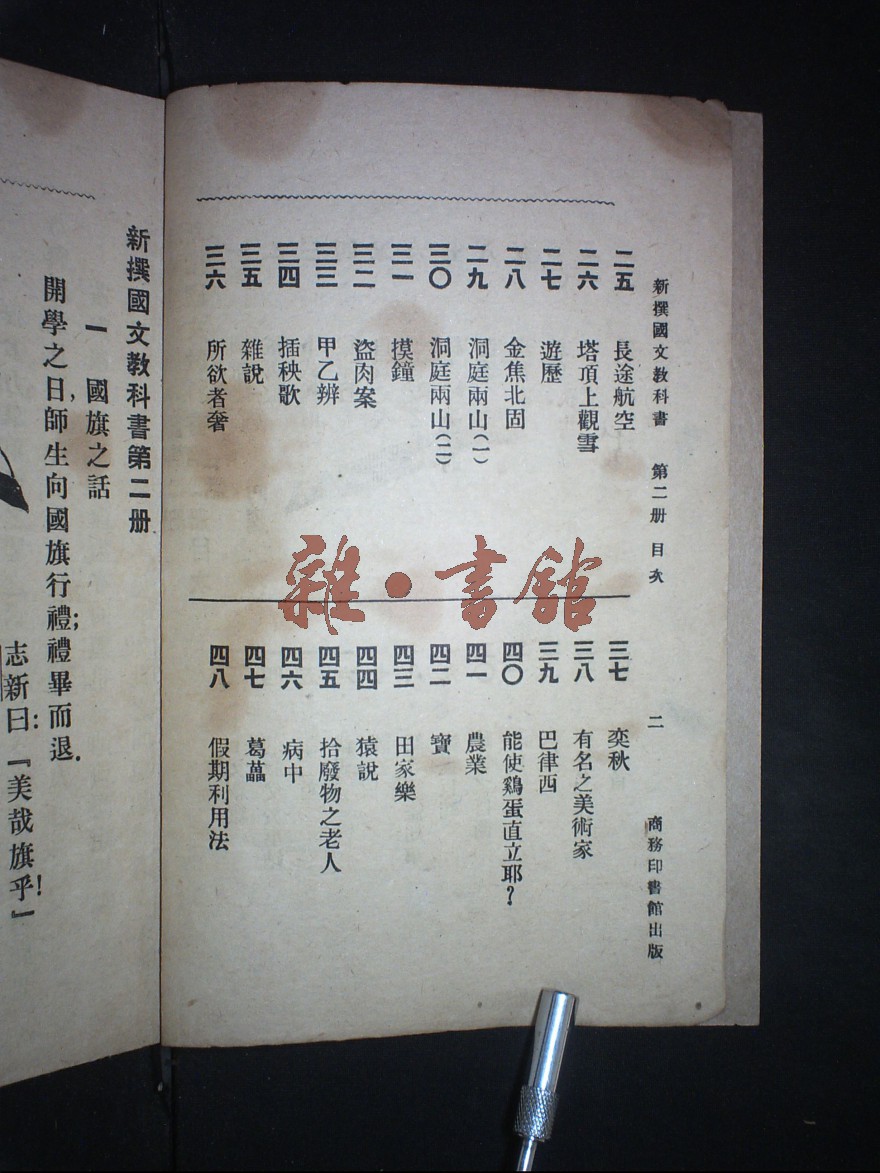 新撰國文教科書 第二册 目次 二 商務印書館出版
二五 長途航空
二六 塔頂上觀雪
二七 遊歷
二八 金焦北固
二九 洞庭兩山(一)
三〇 洞庭兩山(二)
三一 摸鐘
三二 盜肉案
三三 甲乙辨
三四 插秧歌
三五 雜說
三六 所欲者奢
三七 奕秋
三八 有名之美術家
三九 巴律西
四〇 能使鷄蛋直立耶?
四一 農業
四二 寶
四三 田家樂
四四 猿說
四五 拾廢物之老人
四六 病中
四七 葛藟
四八 假期利用法
雜·書館
新撰國文教科書第二册
一 國旗之話
開學之日,師生向國旗行禮;禮畢而退.
志新曰:『美哉旗乎!』